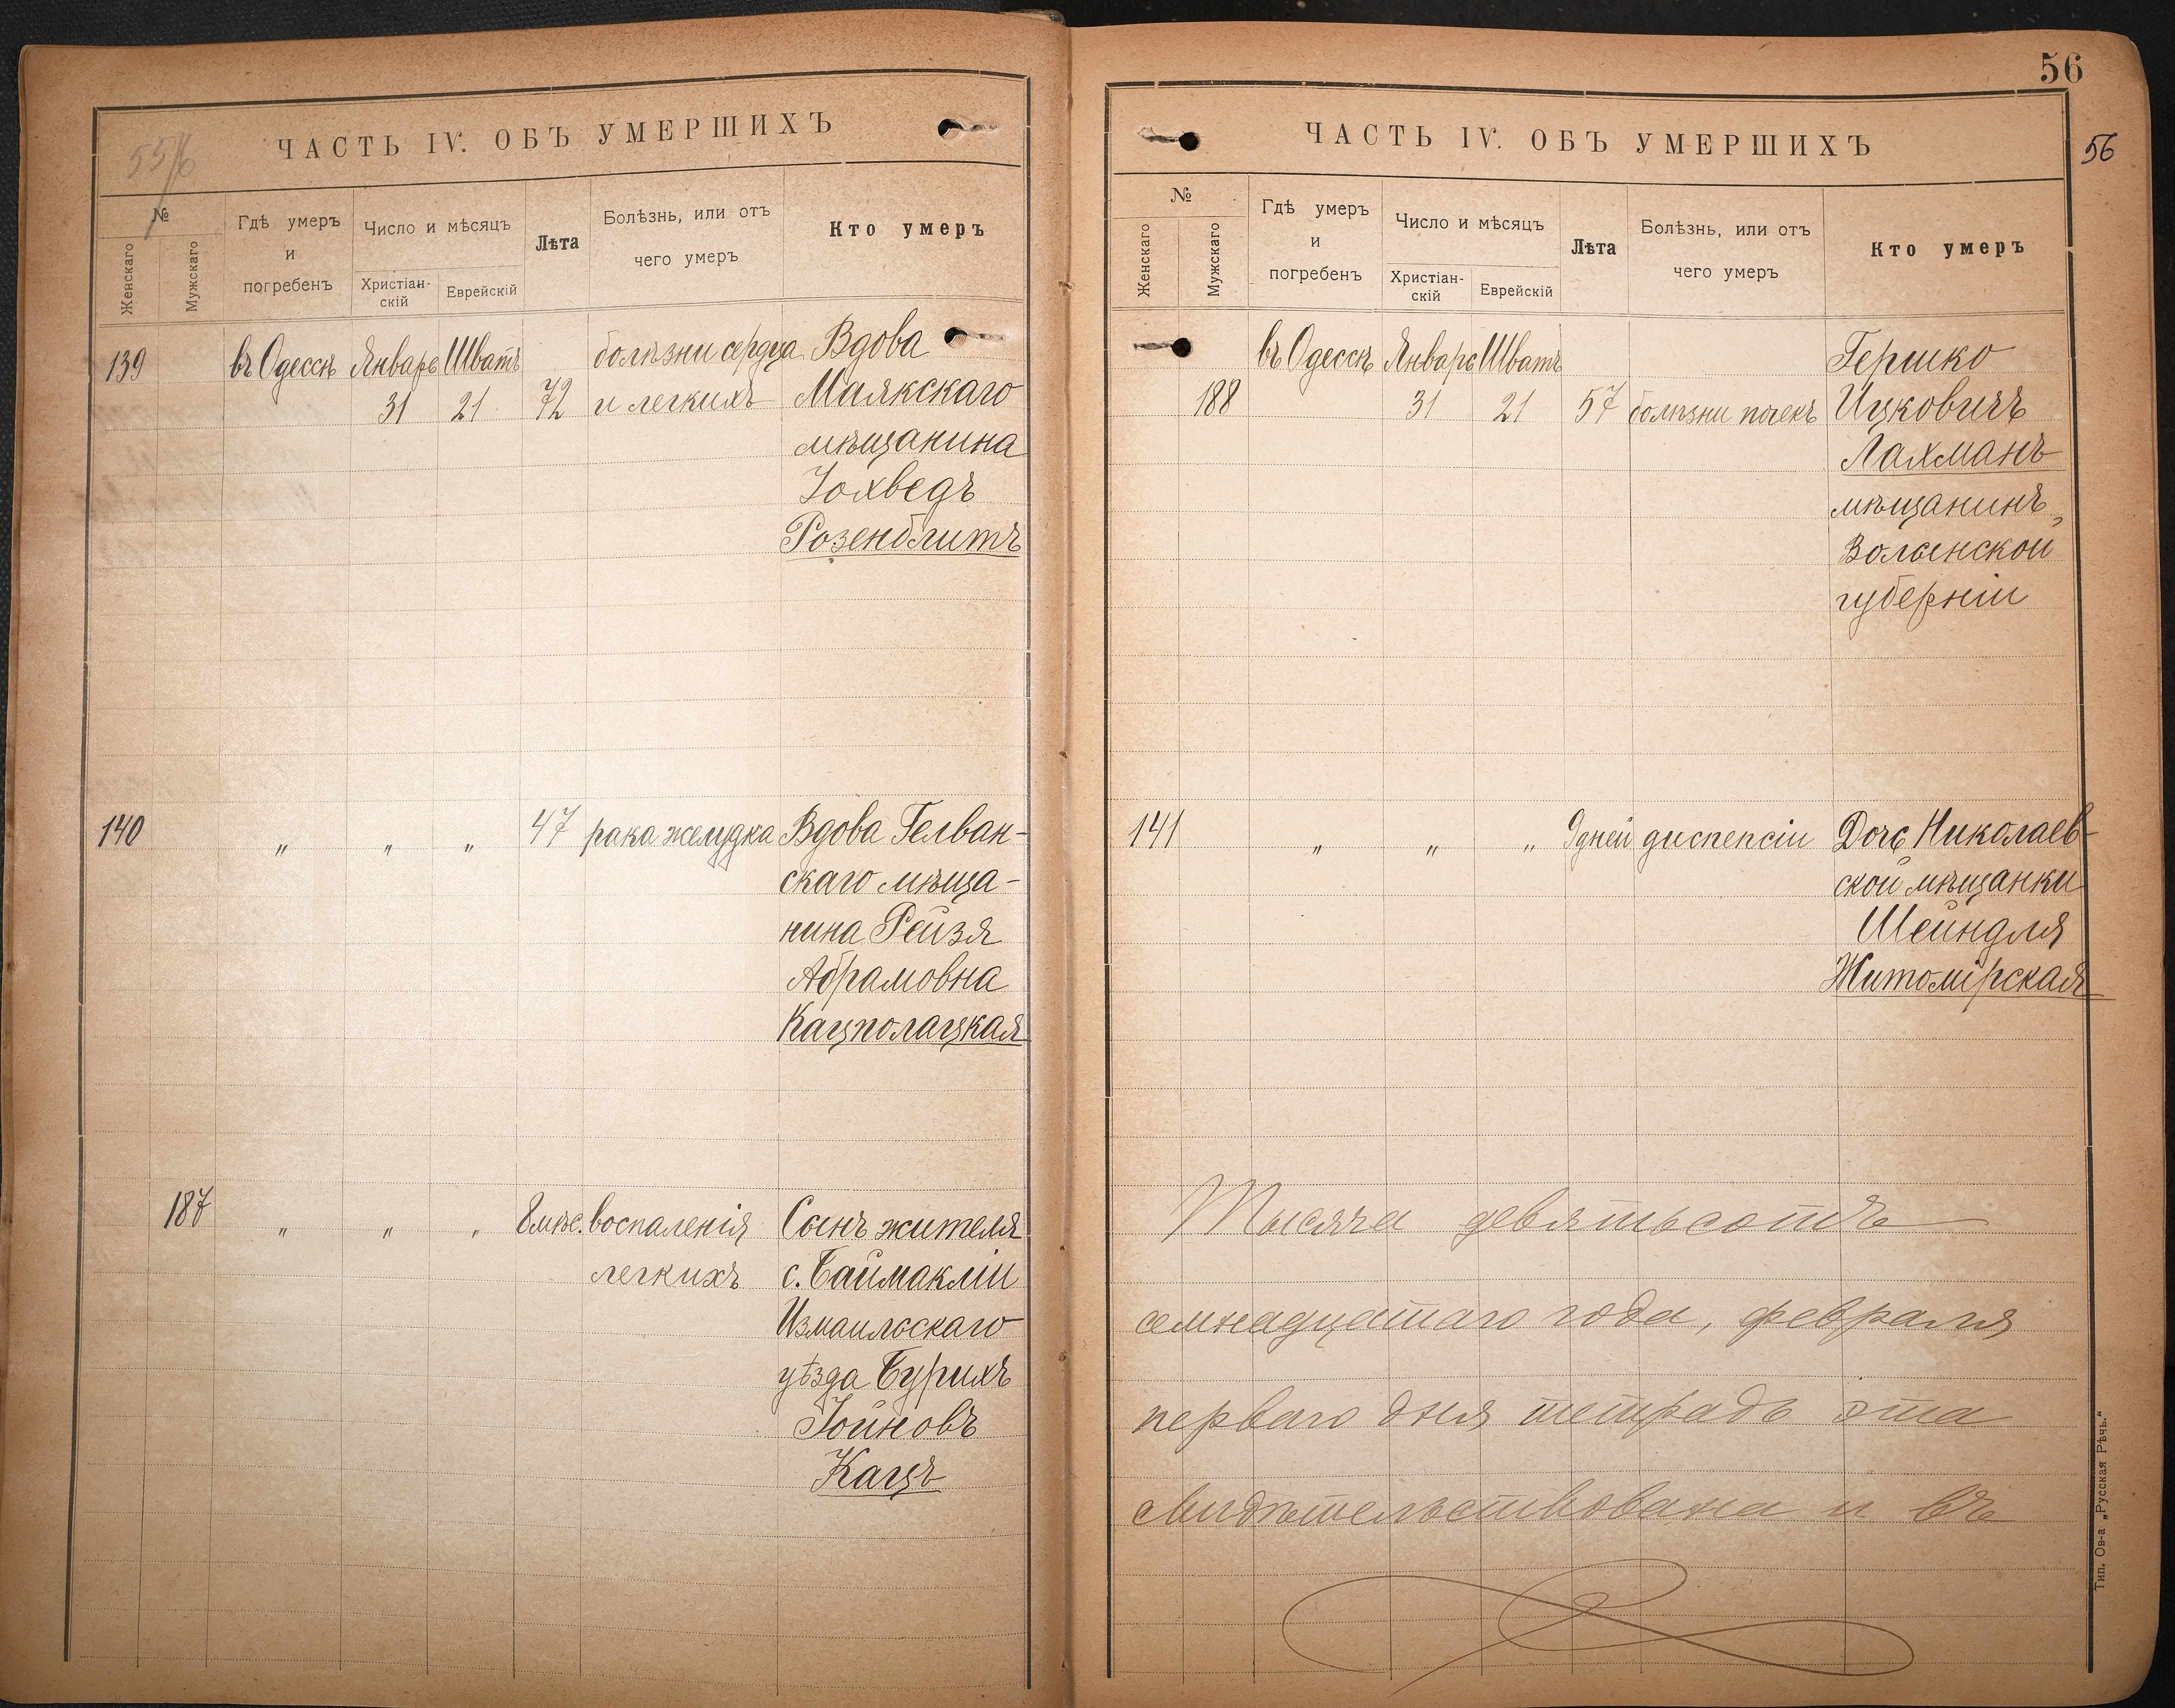 55/6
ЧАСТЬ IV. ОБЪ УМЕРШИХЪ
№
Женскаго
Мужскаго
Гдѣ умеръ
и
погребенъ
Число и мѣсяцъ
Христіан-
скій
Еврейскій
Лѣта
Болѣзнь, или отъ
чего умеръ
Кто умеръ
139 въ Одессѣ Январь Шватъ болѣзни сердца Вдова
31 21 72 и легкихъ Маякскаго
мѣщанина
Іохведъ
Розенблитъ
140 " " " 47 рака желудка Вдова Гелван-
скаго мѣща-
нина Рейзя
Абрамовна
Кацполацкая
187 " " " 8 мѣс. воспаленія Сынъ жителя
легкихъ с. Баймакліи
Измаильскаго
уѣзда Бурихъ
Іойновъ
Кацъ
56
56
ЧАСТЬ IV. ОБЪ УМЕРШИХЪ
№
Женскаго
Мужскаго
Гдѣ умеръ
и
погребенъ
Число и мѣсяцъ
Христіан-
скій
Еврейскій
Лѣта
Болѣзнь, или отъ
чего умеръ
Кто умеръ
въ Одессѣ Январь Шватъ Гершко
188 31 21 57 болѣзни почекъ Ицковичъ
Лахманъ
мѣщанинъ,
Волынской
губерніи
141 " " " 9 дней диспепсіи Дочь Николаев-
ской мѣщанки
Шейндля
Житомірская
Тысяча девятьсотъ
семнадцатаго года, февраля
перваго дня тетрадь эта
свидѣтельствована и въ
Тип. Ов-а „Русская Рѣчь."